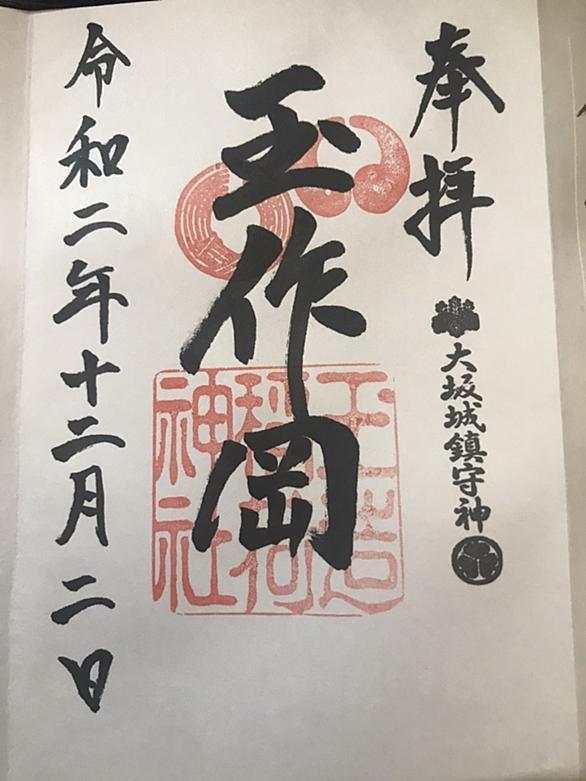 奉拝
大坂城鎮守神
玉作岡
玉造
稲荷
神社
令和二年十二月二日